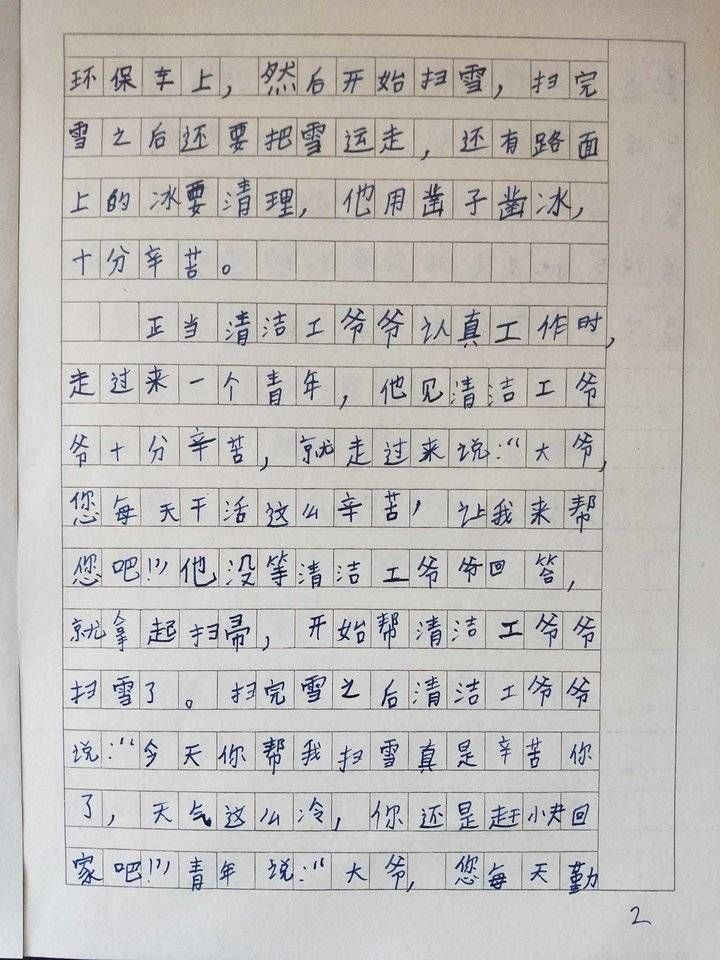 环保车上，然后开始扫雪，扫完
雪之后还要把雪运走，还有路面
上的冰要清理，他用凿子凿冰，
十分辛苦。
正当清洁工爷爷认真工作时，
走过来一个青年，他见清洁工爷
爷十分辛苦，就走过来说：“大爷，
您每天干活这么辛苦，让我来帮
您吧！”他没等清洁工爷爷回答，
就拿起扫帚，开始帮清洁工爷爷
扫雪了。扫完雪之后清洁工爷爷
说：“今天你帮我扫雪真是辛苦你
了，天气这么冷，你还是赶快回
家吧！”青年说：“大爷，您每天勤
2